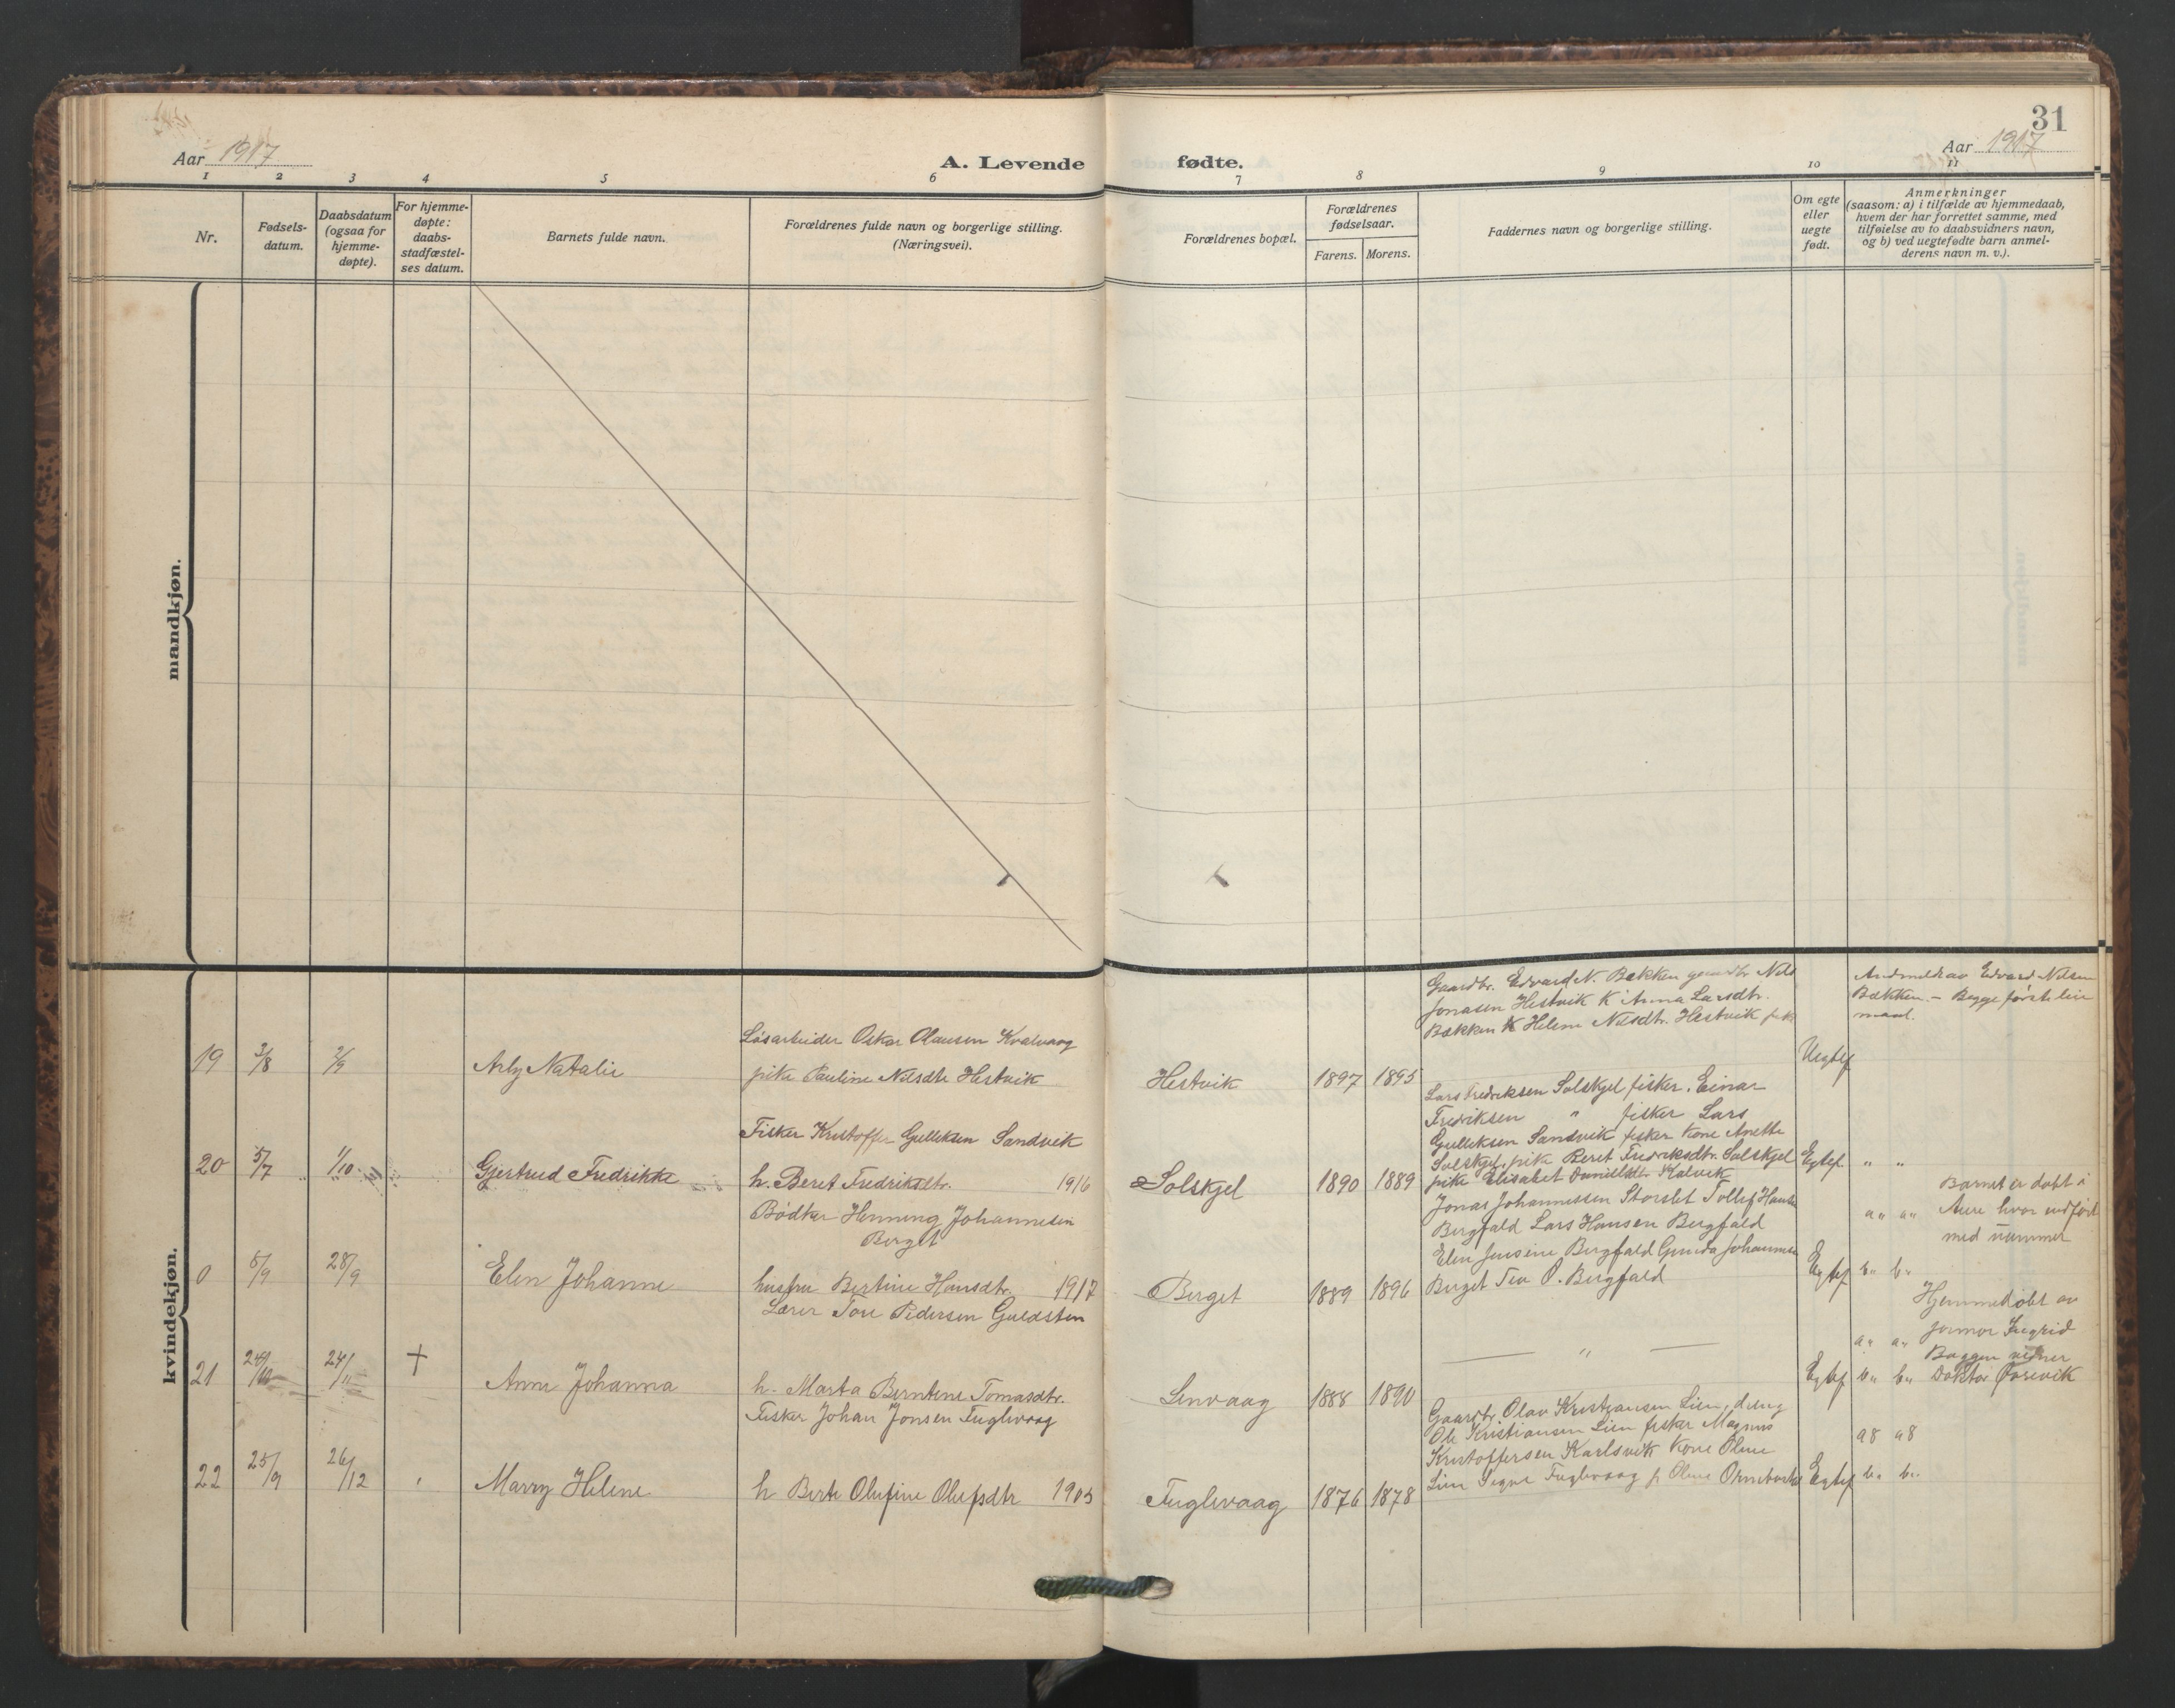 31
Aar 1917
A. Levende fødte.
Aar 1917
1 2 3 4 5 6 7 8 9 10 11
Nr.
Fødsels-
datum.
Daabsdatum
(ogsaa for
hjemme-
døpte).
For hjemme-
døpte:
daabs-
stadfæstel-
ses datum.
Barnets fulde navn.
Forældrenes fulde navn og borgerlige stilling.
(Næringsvei).
Forældrenes bopæl.
Forældrenes
fødselsaar.
Farens. Morens.
Faddernes navn og borgerlige stilling.
Om egte
eller
uegte
født.
Anmerkninger
(saasom: a) i tilfælde av hjemmedaab,
hvem der har forrettet samme, med
tilføielse av to daabsvidners navn,
og b) ved uegtefødte barn anmel-
derens navn m. v.).
mandkjøn.
kvindekjøn.
19 3/8 2/9
Arly Natalie
Løsarbeider Oskar Olausen Kvalvaag
pike Pauline Nilsdtr Hestvik
Hestvik 1897 1895
Gaardbr. Edvard N. Bækken gaardbr Nils
Jonasen Hestvik K Anna Larsdtr.
Bækken K Helene Nilsdtr. Hestvik
Uegtef
av Edvard Nilsen
Bækken. – Begge første
20 5/7 1/10
Gjertrud Fredrikke
Fisker Kristoffer Gulleksen Sandvik
h. Beret Fredriksdtr. 1916
Solskjel 1890 1889
Lars Fredriksen Solskjel fisker. Einar
Fredriksen " fisker Lars
Gulleksen Sandvik fisker Kone Anette
Solskjel, pike Beret Fredriksdtr. Solskjel
pike Elisabet Kalvik
Egtef. " "
0 5/9 28/9
Elen Johanne
Bødker Henning Johannesen
Berget
husfru Bertine Hansdtr. 1917
Berget 1889 1896
Jonas Johannessen Storslet Tollef Hansen
Bergfald Lars Hansen Bergfald
Elen Jensine Bergfald Gunda Johannesen
Berget O. Bergfald
Egtef
a" a"
b" b"
Barnet er døbt i
Aure hvor indført
med nummer
21 24/10 24/11 +
Anne Johanna
Lærer Tore Pedersen Guldsten
h. Marta Berntine Tomasdtr.
Lenvaag 1888 1890
— " —
Egtef
a" a"
b" b"
Hjemmedøbt av
Ingrid
Doktor
22 25/9 26/12
Marry Helene
Fisker Johan Jonsen Fuglevaag
h Berte Olufine Olufsdtr 1905
Fuglevaag 1876 1878
Gaardbr Olav Kristiansen Lien,
Ole Kristiansen Lien fisker Magnus
Kristoffersen Karlsvik Kone Oline
Lien Signe Fuglevaag p. Oline
Egtef
b" b"